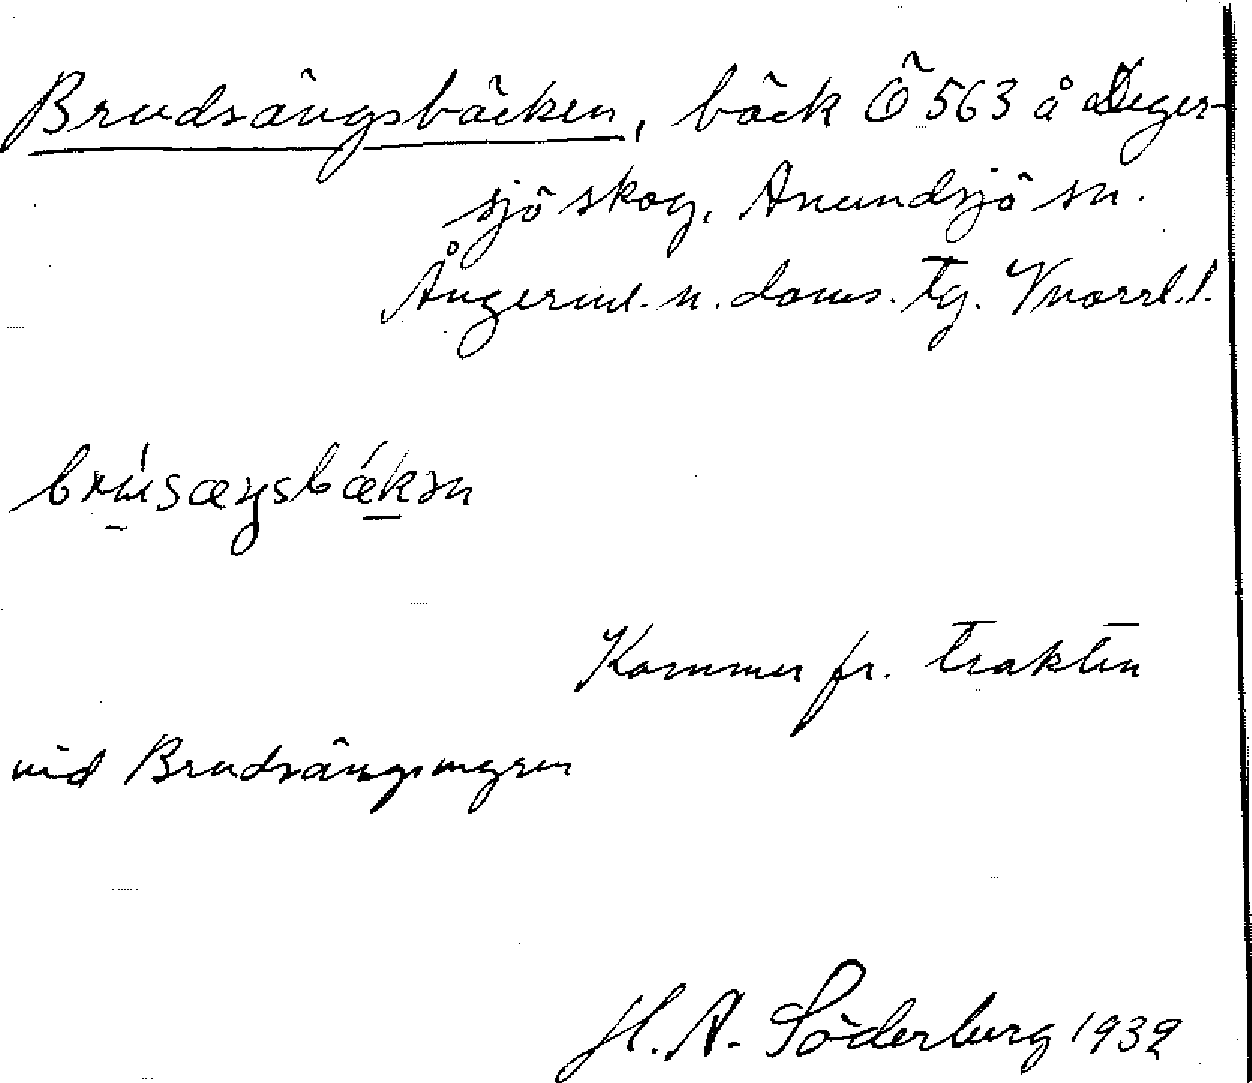 Brudsängsbäcken, bäck Ö 563 å Deger-
sjö skog, Anundsjö sn.
Ångerml. n. doms. tg. Vnorrl. l.
brúsæŋsbǽkən
Kommer fr. trakten
vid Brudsängsmyren
H. A. Söderberg 1932